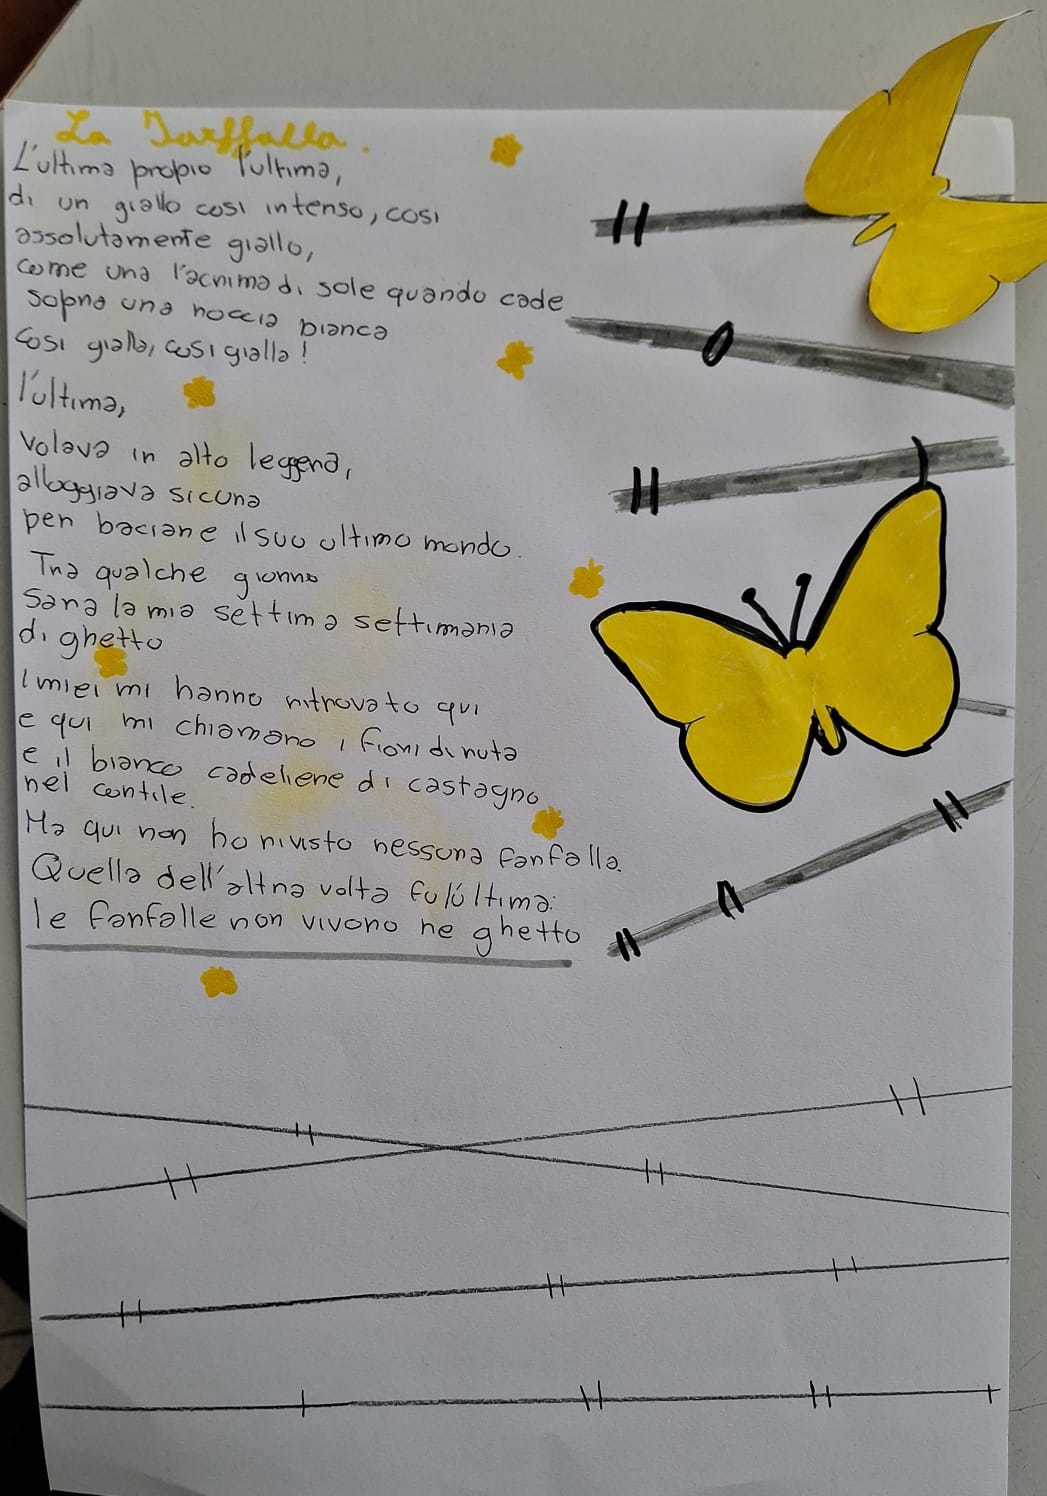 La Farffalla.
L'ultima propio l'ultima,
di un giallo così intenso, così
assolutamente giallo,
come una l'acrima di sole quando cade
sopra una roccia bianca
Così gialla, così gialla!
l'ultima,
Volava in alto leggera,
alloggiava sicura
per baciare il suo ultimo mondo.
Tra qualche giorno
Sara la mia settima settimania
di ghetto
I miei mi hanno ritrovato qui
e qui mi chiamano i fiori di ruta
e il bianco cadeliere di castagno
nel cortile.
Ma qui non ho rivisto nessuna farfalla.
Quella dell'altra volta fu l'última:
le farfalle non vivono ne ghetto